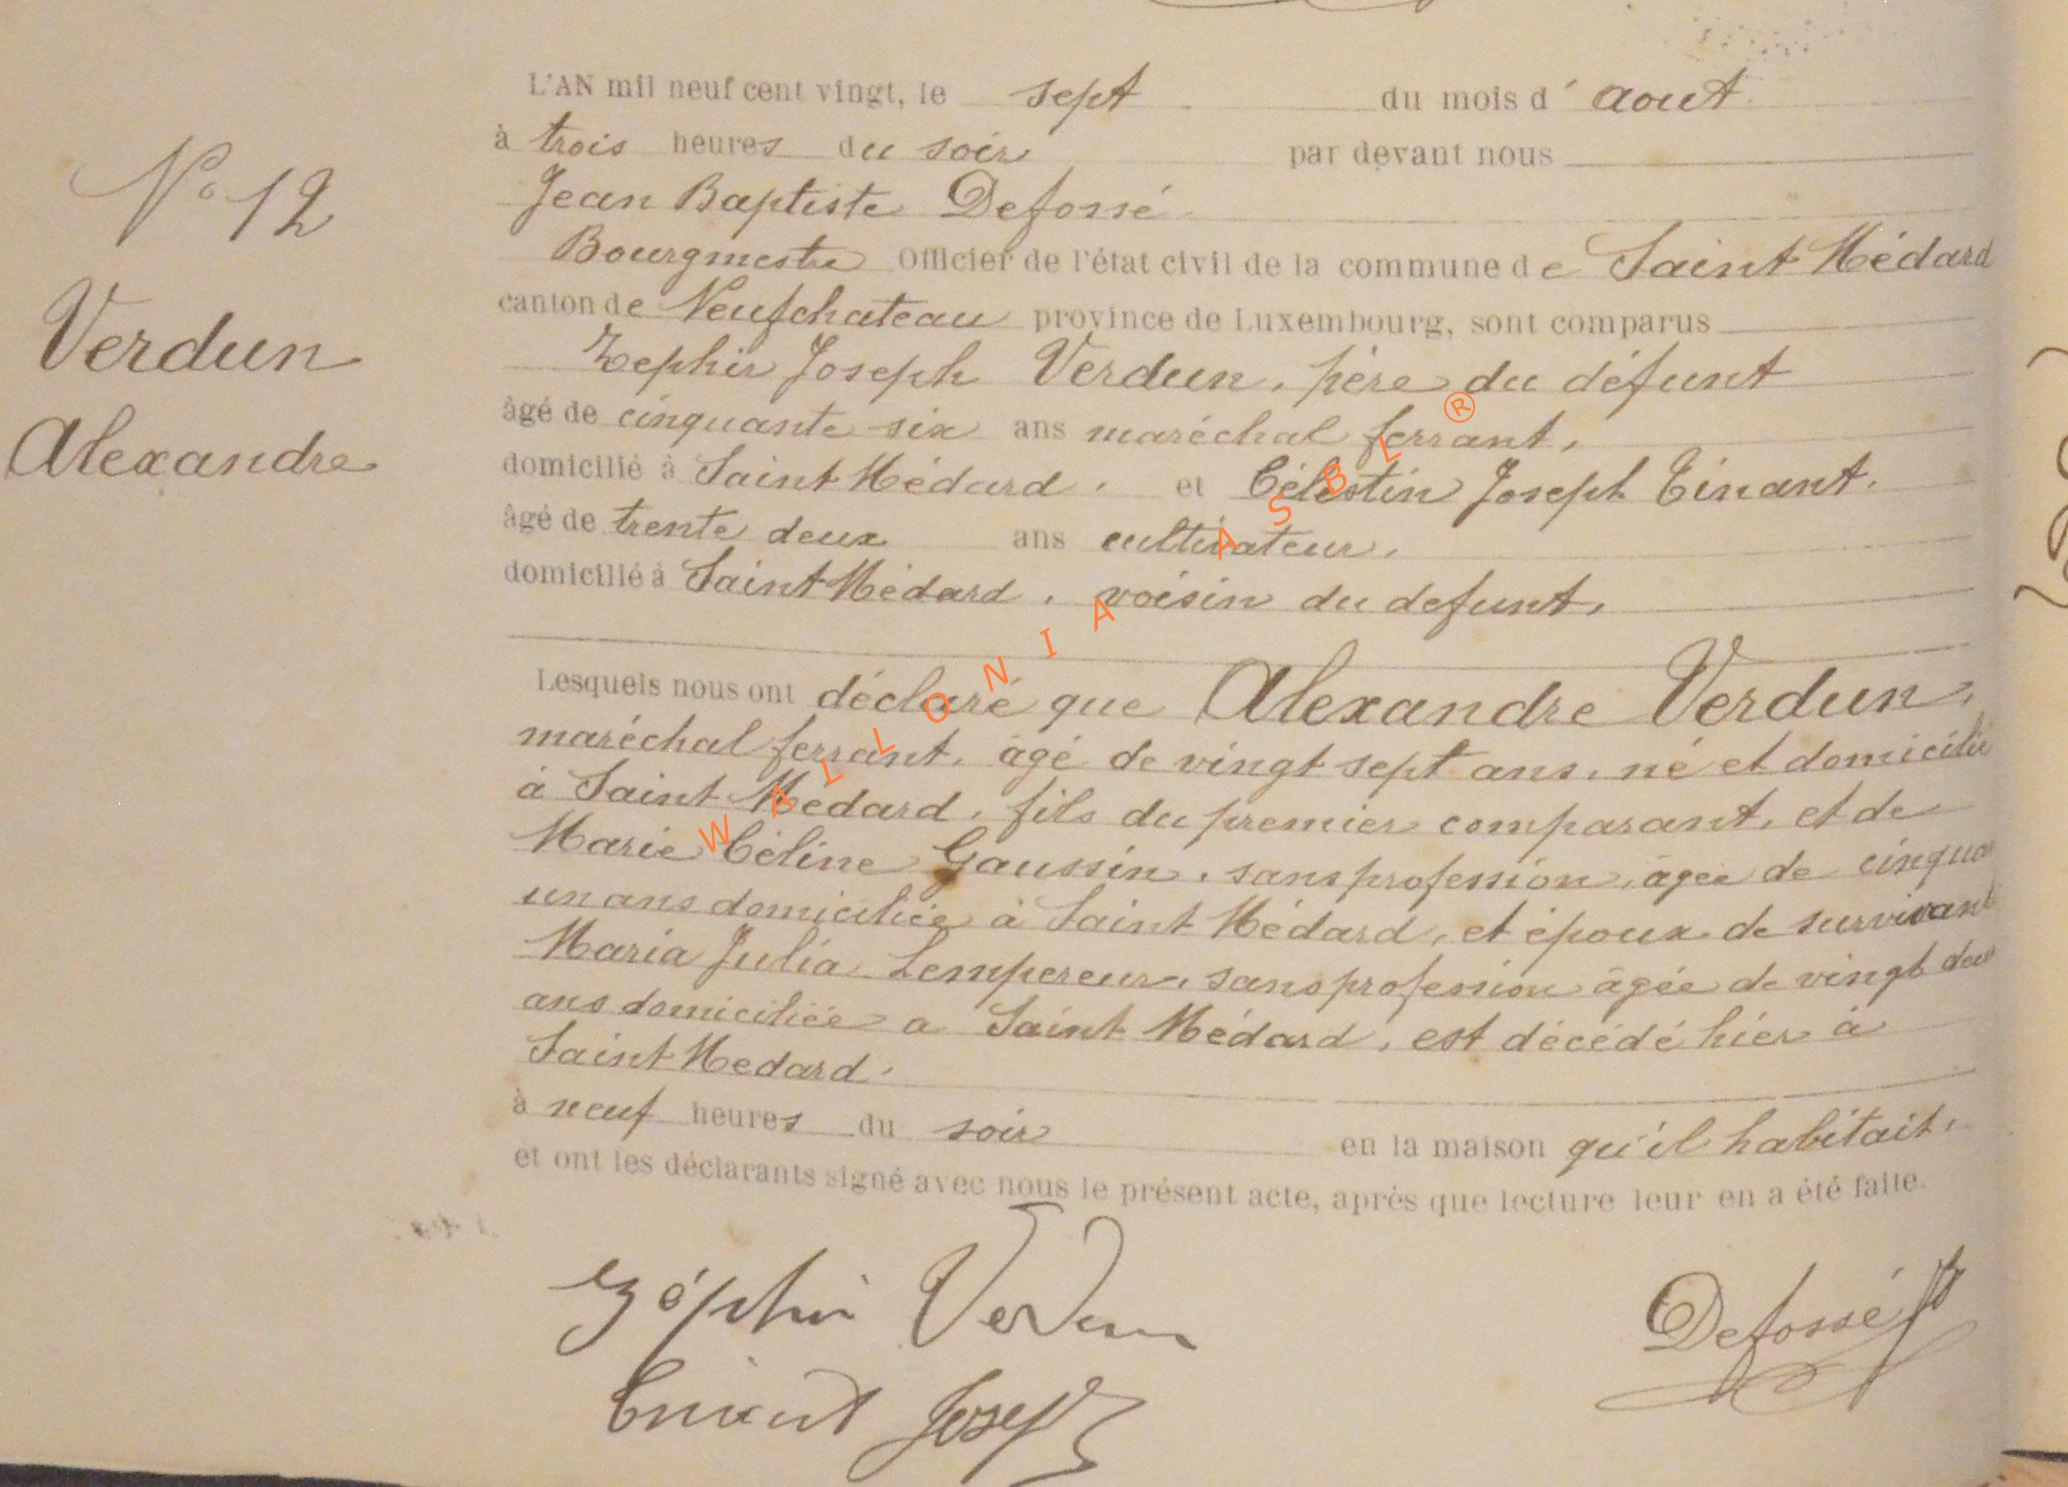 N° 12
Verdun
Alexandre
L'AN mil neuf cent vingt, le sept du mois d' aout
à trois heures du soir par devant nous
Jean Baptiste Defossé
Bourgmestre Officier de l'état civil de la commune de Saint Médard
canton de Neufchateau province de Luxembourg, sont comparus
Zephir Joseph Verdun, père du défunt
âgé de cinquante six ans maréchal ferrant,
domicilié à Saint Médard, et Célestin Joseph Tinant,
âgé de trente deux ans cultivateur,
domicilié à Saint Médard, voisin du defunt,
Lesquels nous ont déclaré que Alexandre Verdun,
maréchal ferrant, âgé de vingt sept ans, né et domicilié
à Saint Médard, fils du premier comparant, et de
Marie Céline Gaussin, sans profession, âgée de cinquan
un ans domiciliée à Saint Médard, et époux de survivant
Maria Julia Lempereur, sans profession âgée de vingt deux
ans domiciliée a Saint Médard, est décédé hier à
Saint Medard.
à neuf heures du soir en la maison qu'il habitait,
et ont les déclarants signé avec nous le présent acte, après que lecture leur en a été faite.
Zéphir Verdun
Defossé
Tinant Joseph
WALLONIA ASBL ®